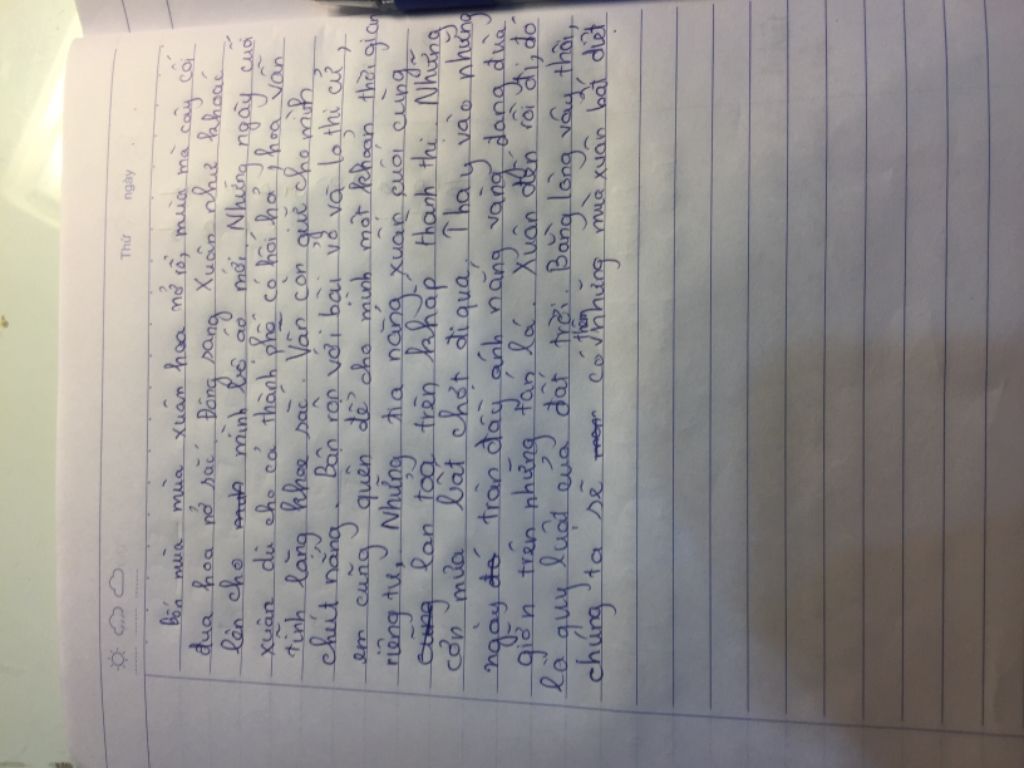 Thứ ngày
Bốn mùa mùa xuân hoa nở rộ, mùa mà cây cối
đua hoa nở sắc Đông sang Xuân nhẹ khoác
lên cho mình bộ áo mới Những ngày cuối
xuân dù cho cả thành phố có hối hả, hoa vẫn
tĩnh lặng khoe sắc. Vẫn còn giữ cho mình
chút nắng. Bận rộn với bài vở và lo thi cử,
em cũng quên để cho mình một khoản thời gian
riêng tư, Những tia nắng xuân cuối cùng
lan tỏa trên khắp thành thị Những
cơn mưa lất chớt đi qua, Thay vào những
ngày tràn đầy ánh nắng vàng đang đùa
giỡn trên những tán lá. Xuân đến rồi đi, đó
là quy luật của đất trời. Bằng lòng vậy thôi,
chúng ta sẽ có thêm những mùa xuân bất dứt.